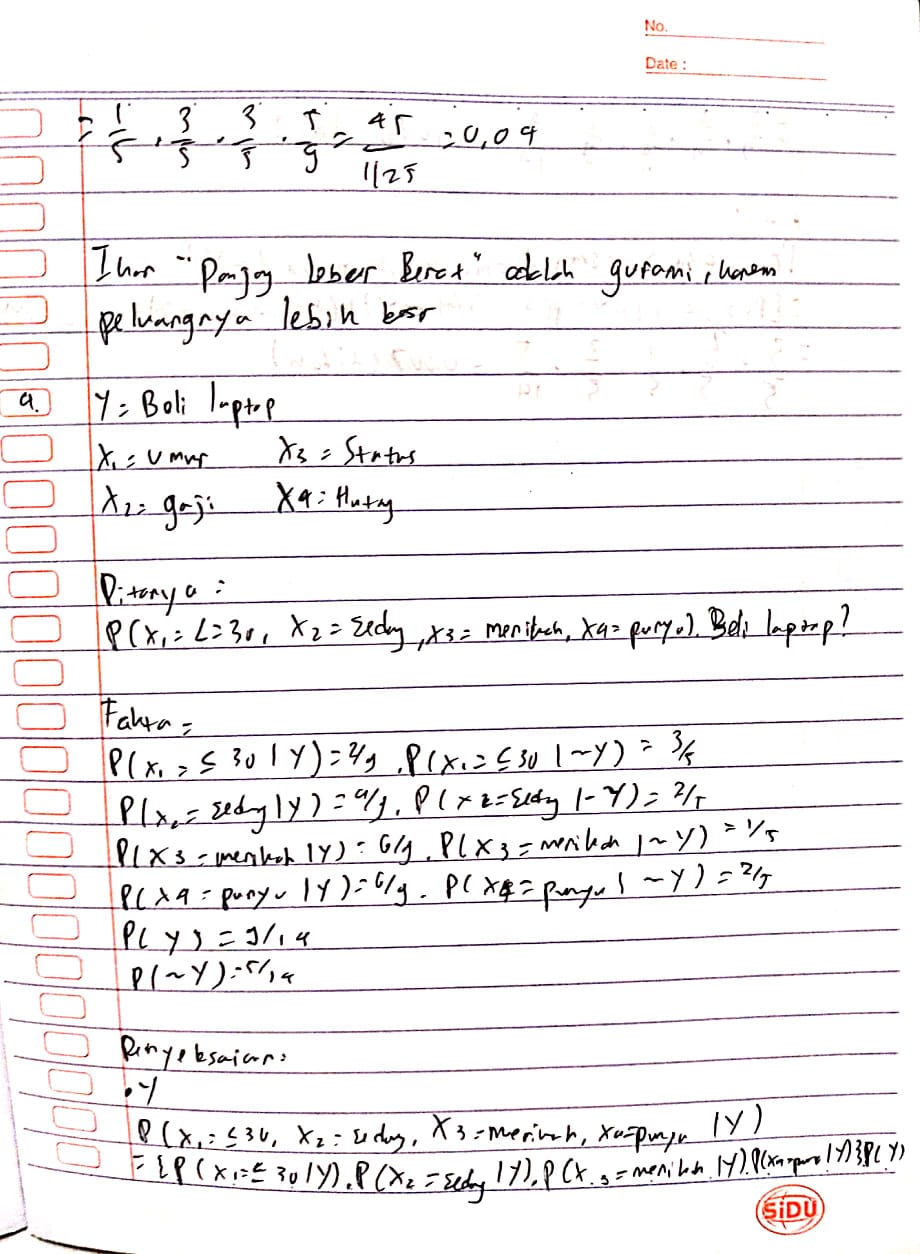 No.
Date :
= 1/5 . 3/5 . 3/5 . 5/9 = 45/1125 = 0,04
Ikan "Panjang lebar Berat" adalah gurami, karena
peluangnya lebih besar
4. Y = Beli laptop
X1 = Umur X3 = Status
X2 = gaji X4 = Hutang
Ditanya :
P(X1 = <= 30, X2 = Sedang, X3 = menikah, X4 = punya). Beli laptop?
Fakta =
P(X1 = ≤ 30 | Y) = 2/9 . P(X1 = ≤ 30 | ~Y) = 3/5
P(X2 = Sedang | Y) = 4/9 . P(X2 = Sedang | ~Y) = 2/5
P(X3 = menikah | Y) = 6/9 . P(X3 = menikah | ~Y) = 1/5
P(X4 = punya | Y) = 6/9 . P(X4 = punya | ~Y) = 2/5
P(Y) = 9/14
P(~Y) = 5/14
Penyelesaian :
• Y
P(X1 = ≤ 30, X2 = Sedang, X3 = menikah, X4 = punya | Y)
= {P(X1 = ≤ 30 | Y). P(X2 = Sedang | Y). P(X3 = menikah | Y). P(X4 = punya | Y)} P(Y)
SiDU